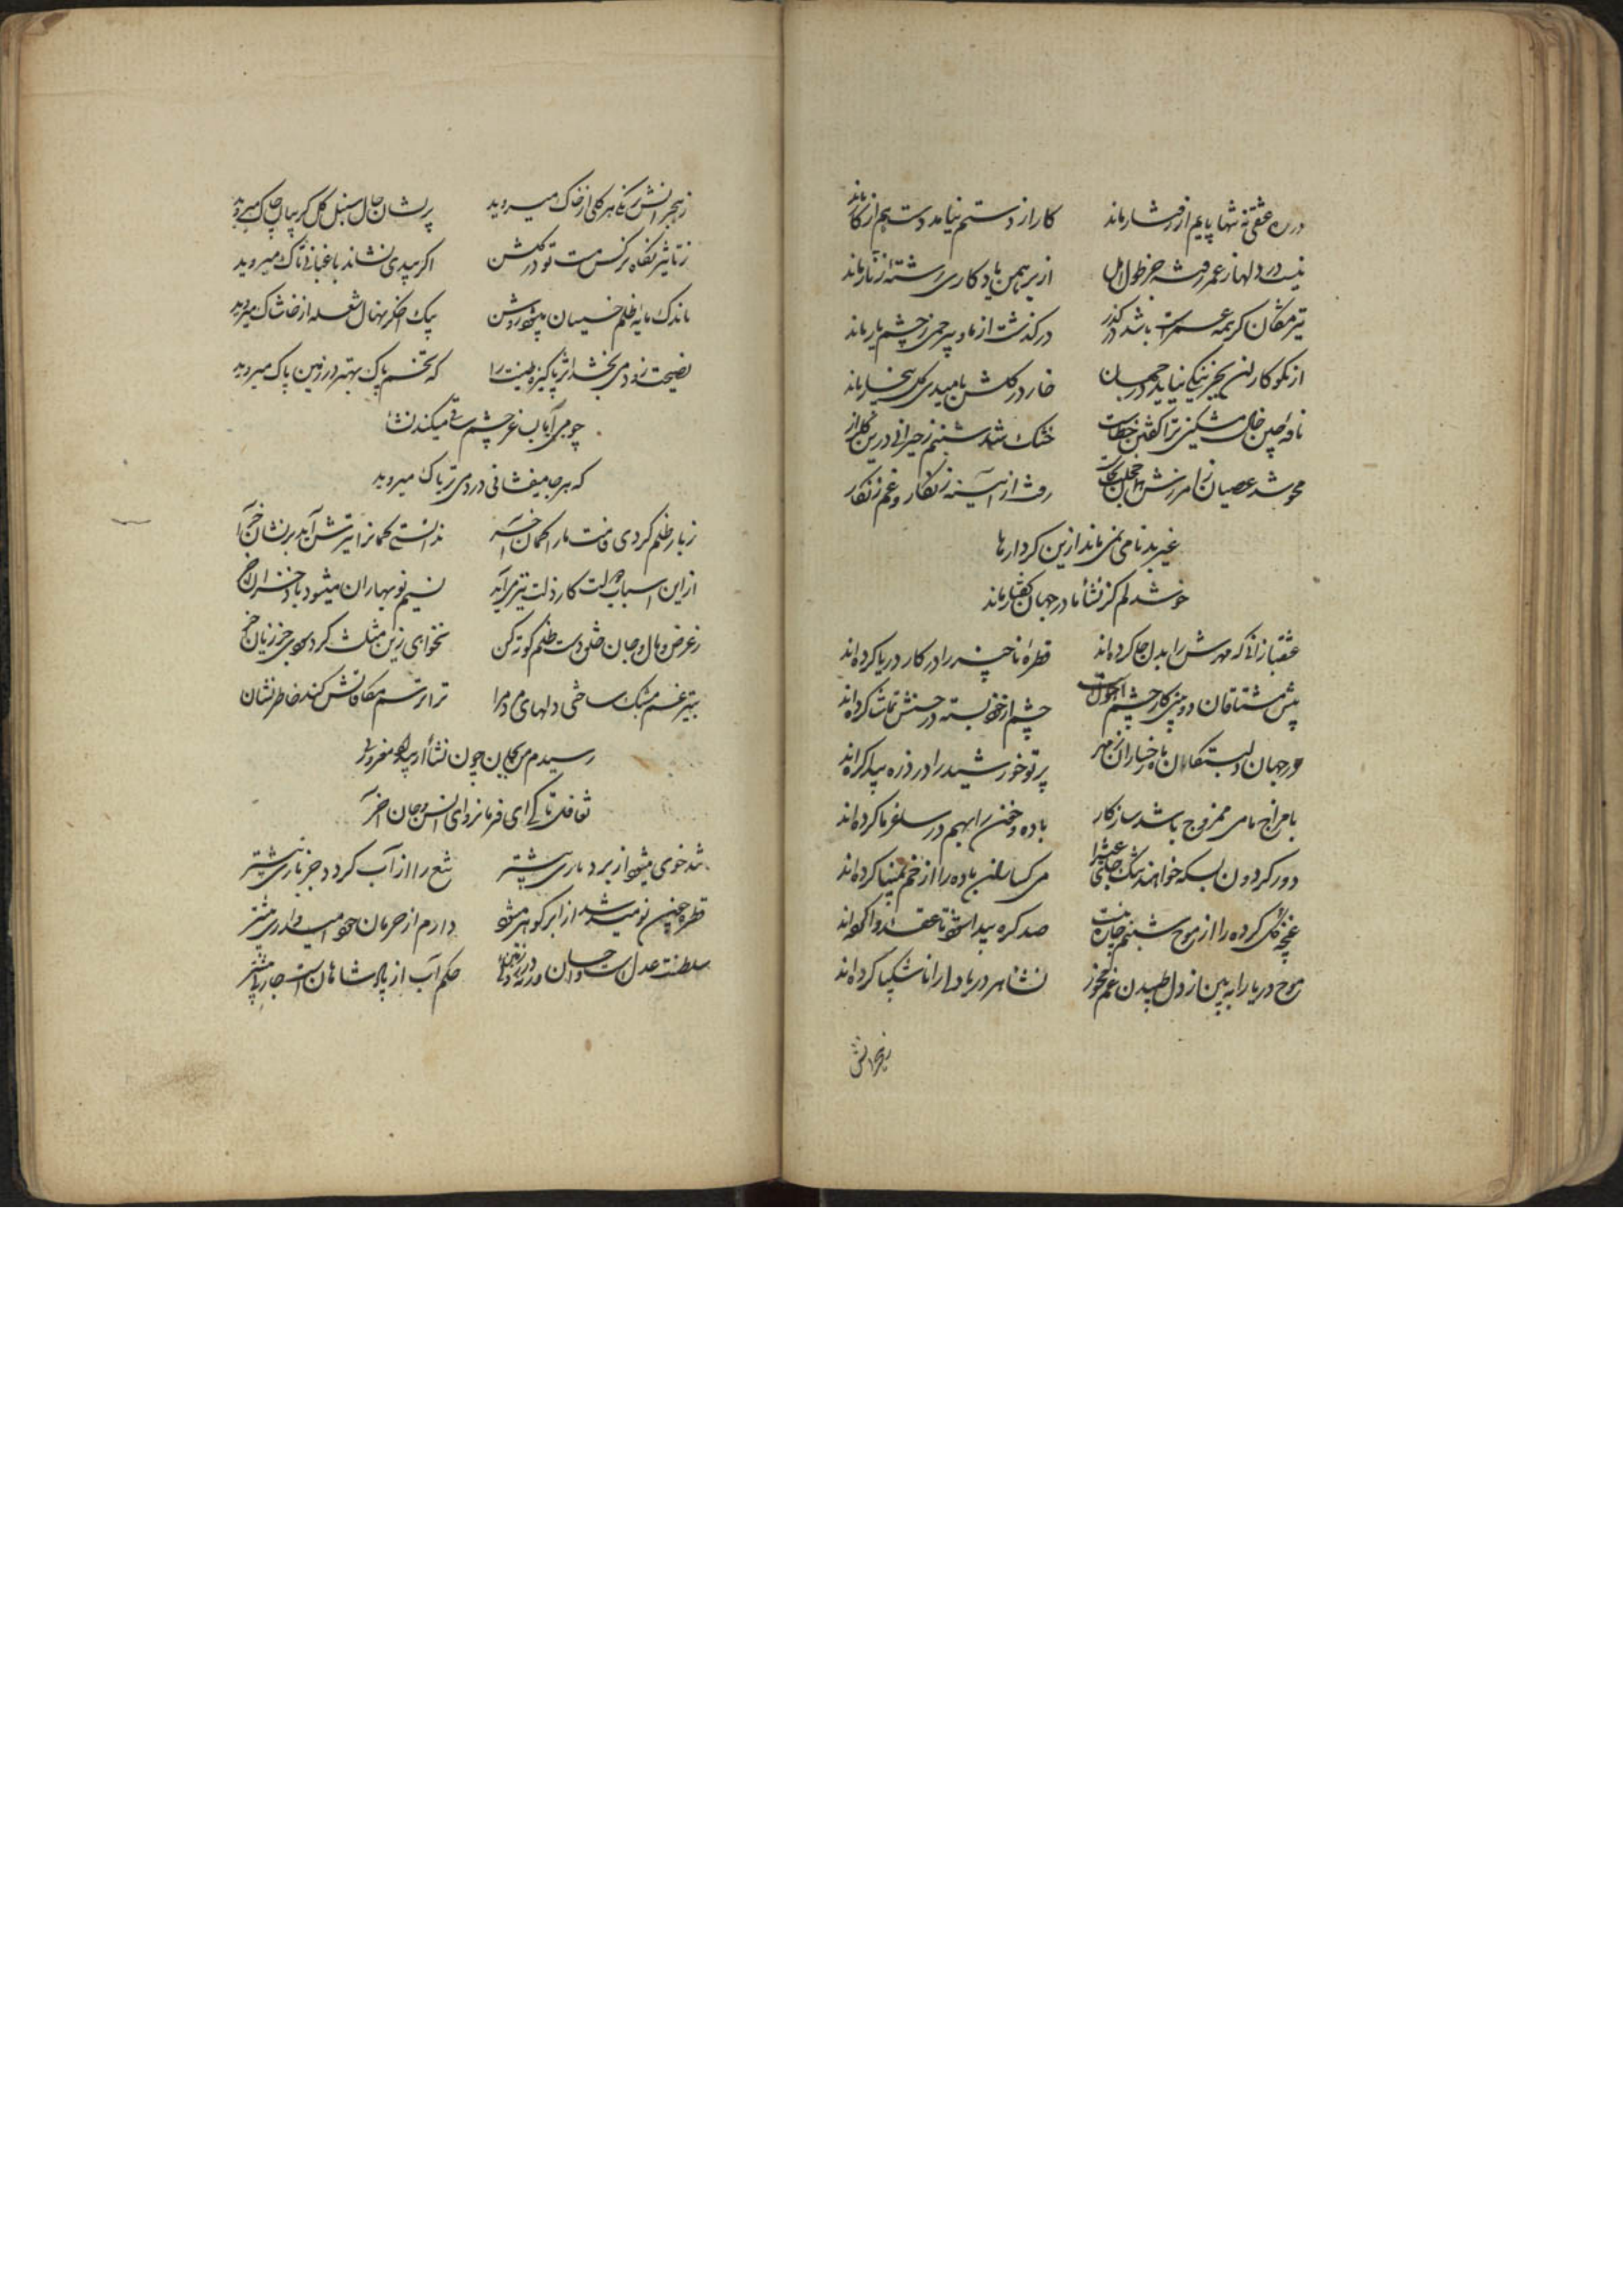 در ره عشق نه تنها پایم از رفتار ماند کار از دستم نیامد دست هم از کار ماند
نیست در دلها ز عمر رفته جز طول امل از برهمن یادگاری رشته زنار ماند
تیر مژگان گر همه عمرست باشد در گذر در گذشت از ما و بیرحمی ز چشم یار ماند
از نکوکاران بجز نیکی نیاید در جهان خار در گلشن بامید گل بیخار ماند
نافه چین خال مشکین ترا گفتن خطاست خشک شد شبنم ز حیرانی درین گلزار
محو شد عصیان ز آمرزش خجلت رفت از آیینه زنگار و غم زنگار
غیر بدنامی نمی ماند ازین کردارها
خوشدلم کز نشأ ما در جهان گفتار ماند
عشقبازانی که مهرش را بدل جا کرده اند قطره ناچیز را در کار دریا کرده اند
پیش مشتاقان دوبینی کار چشم احولست چشم از خود بسته در حسنش تماشا کرده اند
در جهان دلبستگان ماه رخساران ز مهر پرتو خورشید را در ذره پیدا کرده اند
با مزاج ما می ممزوج باشد سازگار باده و خون را بهم در ساغر ما کرده اند
دور گردون بسکه خواهد تنگ عیش را می کساران باده را از خم بمینا کرده اند
غنچه گل کرده را از موج شبنم چاره نیست صد گره پیدا شود تا عقده وا کرده اند
موج دریا را ببین از دل طپیدن غم مخور نشأ هر دریا دلی را ناشکیبا کرده اند
ز هجرانش
ز هجرانش نه هر گلی از خاک میروید پریشان حال سنبل گل گریبان چاک میروید
ز تاثیر نگاه نرگس مست تو در گلشن اگر بیدی نشاند باغبانی تاک میروید
باندک مایه ظلم خسیسان میشود روشن بیک اخگر نهال شعله از خاشاک میروید
نصیحت زود می بخشد اثر پاکیزه طینت را که تخم پاک بهتر در زمین پاک میروید
چو می آید بساغر چشم ساقی میکند نشأ
که هر جا میفشانی درد می تریاک میروید
ز بار ظلم کردی قامت ما را کمان آخر ندانستی کمانرا تیرش آید بر نشان آخر
از این اسباب دولت کار ذلت نیز می آید نسیم نوبهاران میشود باد خزان آخر
ز عرض و مال و جان خلق دست ظلم کوته کن نخواهی زین مثلث کرد سودی جز زیان آخر
بتیر غم مشبک ساختی دلهای مردم را ترا ترسم مکافاتش کند خاطر نشان
رسیدم من بجان چون نشأ از بیداد مغروران
تغافل تا کی ای فرمانروای انس و جان آخر
تند خوی میشود از بردباری بیشتر تیغ را از آب گردد جزباری بیشتر
قطره چون نومید شد از ابر گوهر میشود دارم از حرمان خود امیدواری بیشتر
سلطنت عدل است و احسان ورنه در روی زمین حکم آب از پادشاهان است جاری بیشتر